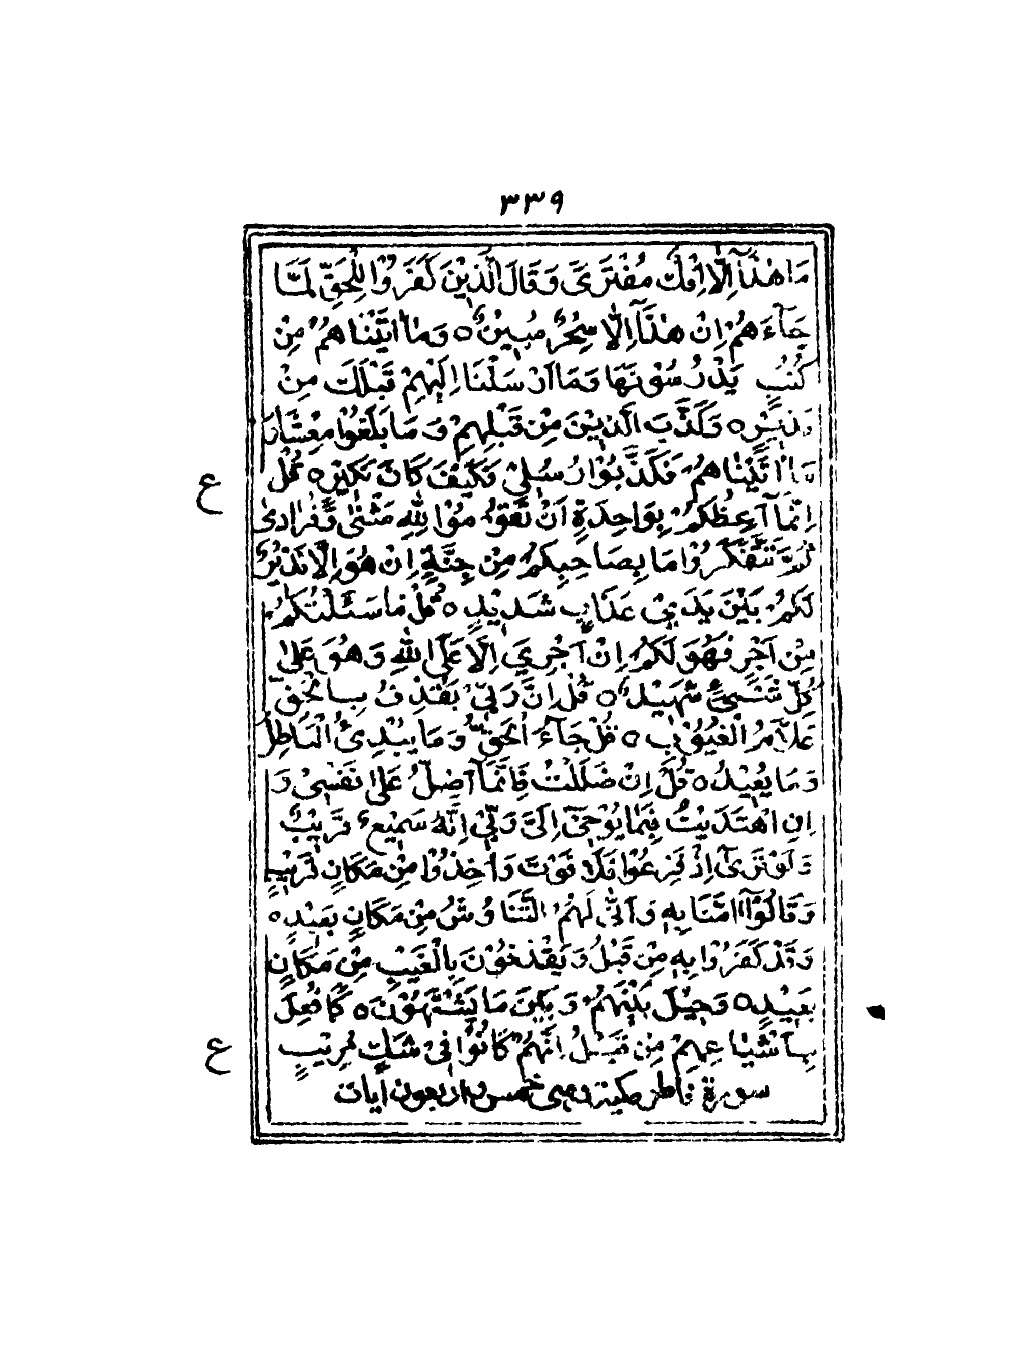 ٣٣٩
مَا هٰذَآ اِلَّآ اِفْكٌ مُّفْتَرًى وَقَالَ الَّذِيْنَ كَفَرُوْا لِلْحَقِّ لَمَّا
جَآءَهُمْ اِنْ هٰذَآ اِلَّا سِحْرٌ مُّبِيْنٌ ○ وَمَآ اٰتَيْنٰاهُمْ مِنْ
كُتُبٍ يَدْرُسُوْنَهَا وَمَآ اَرْسَلْنَا اِلَيْهِمْ قَبْلَكَ مِنْ
نَذِيْرٍ ○ وَكَذَّبَ الَّذِيْنَ مِنْ قَبْلِهِمْ وَمَا بَلَغُوْا مِعْشَارَ
مَآ اٰتَيْنٰاهُمْ فَكَذَّبُوْا رُسُلِيْ فَكَيْفَ كَانَ نَكِيْرِ ○ قُلْ
ع
اِنَّمَآ اَعِظُكُمْ بِوَاحِدَةٍ اَنْ تَقُوْمُوْا لِلّٰهِ مَثْنٰى وَفُرَادٰى
ثُمَّ تَتَفَكَّرُوْا مَا بِصَاحِبِكُمْ مِنْ جِنَّةٍ اِنْ هُوَ اِلَّا نَذِيْرٌ
لَكُمْ بَيْنَ يَدَيْ عَذَابٍ شَدِيْدٍ ○ قُلْ مَا سَئَلْتُكُمْ
مِنْ اَجْرٍ فَهُوَ لَكُمْ اِنْ اَجْرِيَ اِلَّا عَلَى اللّٰهِ وَهُوَ عَلٰى
كُلِّ شَيْءٍ شَهِيْدٌ ○ قُلْ اِنَّ رَبِّيْ يَقْذِفُ بِالْحَقِّ
عَلَّامُ الْغُيُوْبِ ○ قُلْ جَآءَ الْحَقُّ وَمَا يُبْدِئُ الْبَاطِلُ
وَمَا يُعِيْدُ ○ قُلْ اِنْ ضَلَلْتُ فَاِنَّمَآ اَضِلُّ عَلٰى نَفْسِيْ وَ
اِنِ اهْتَدَيْتُ فَبِمَا يُوْحِيْٓ اِلَيَّ رَبِّيْ اِنَّهُ سَمِيْعٌ قَرِيْبٌ
وَلَوْ تَرٰٓى اِذْ فَزِعُوْا فَلَا فَوْتَ وَاُخِذُوْا مِنْ مَكَانٍ قَرِيْبٍ
وَقَالُوْٓا اٰمَنَّا بِهٖ وَاَنّٰى لَهُمُ التَّنَاوُشُ مِنْ مَكَانٍ بَعِيْدٍ ○
وَقَدْ كَفَرُوْا بِهٖ مِنْ قَبْلُ وَيَقْذِفُوْنَ بِالْغَيْبِ مِنْ مَكَانٍ
بَعِيْدٍ ○ وَحِيْلَ بَيْنَهُمْ وَبَيْنَ مَا يَشْتَهُوْنَ ○ كَمَا فُعِلَ
بِاَشْيَاعِهِمْ مِنْ قَبْلُ اِنَّهُمْ كَانُوْا فِيْ شَكٍّ مُرِيْبٍ
ع
سورة فاطر مكية وهى خمس واربعون ايات